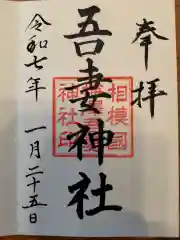 奉拝
吾妻神社
令和七年
一月二十五日
相模國
神社印